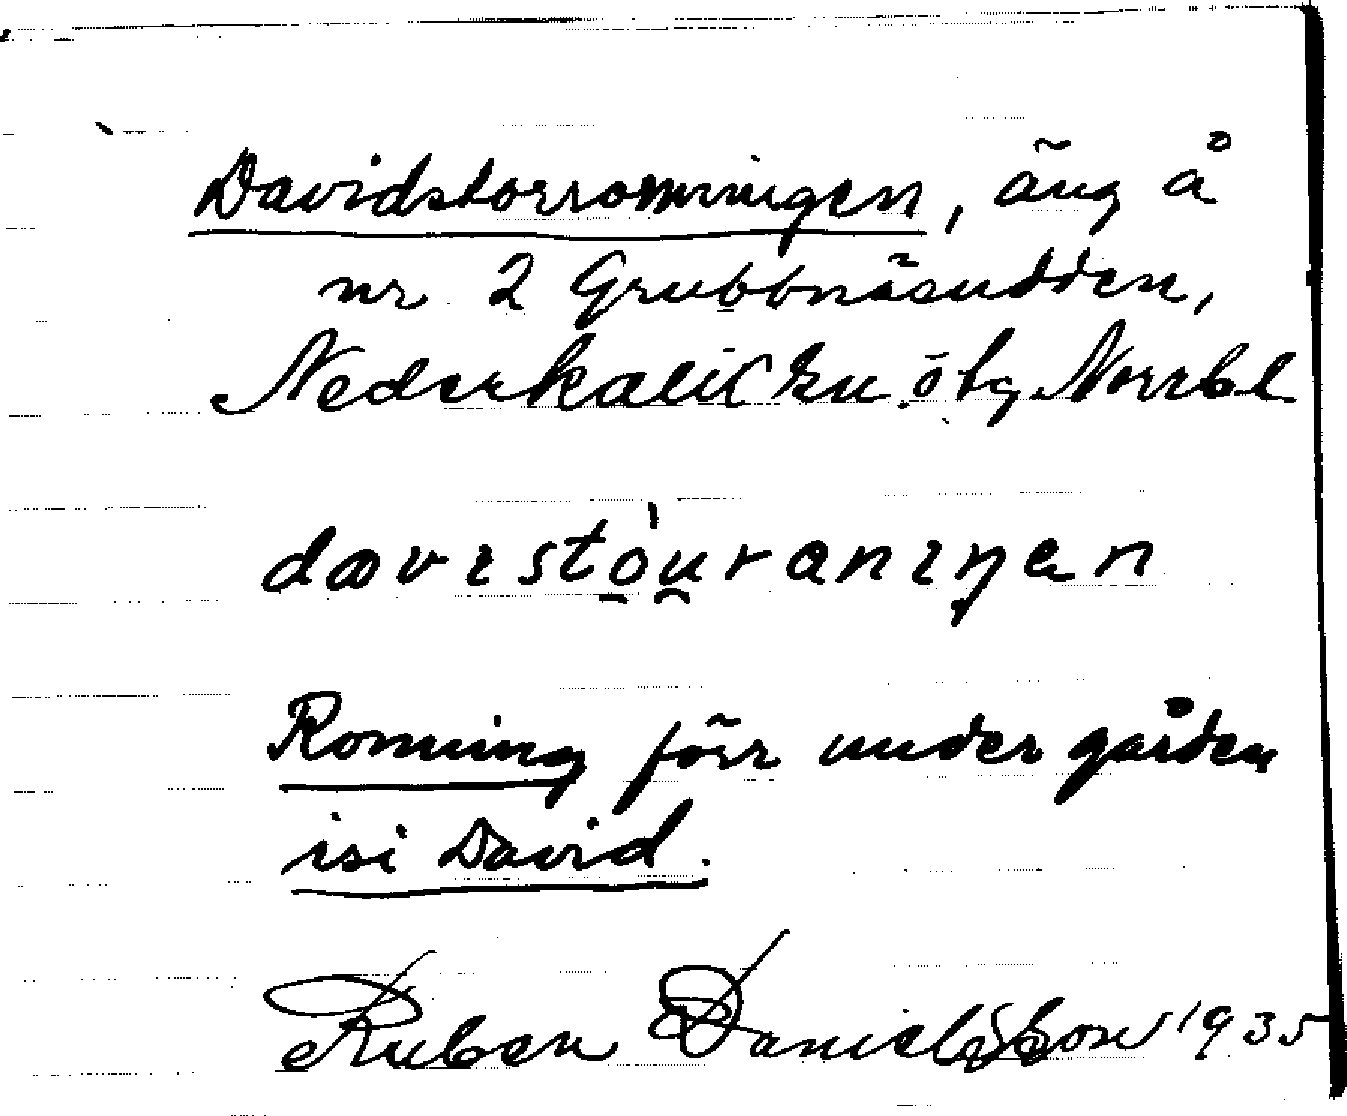 Davidstorromningen, äng å
nr 2 Grubbnäsudden,
Nederkalix sn. öbg Norrb l
Romning förr under gården
isi David.
Ruben Danielsson 1935